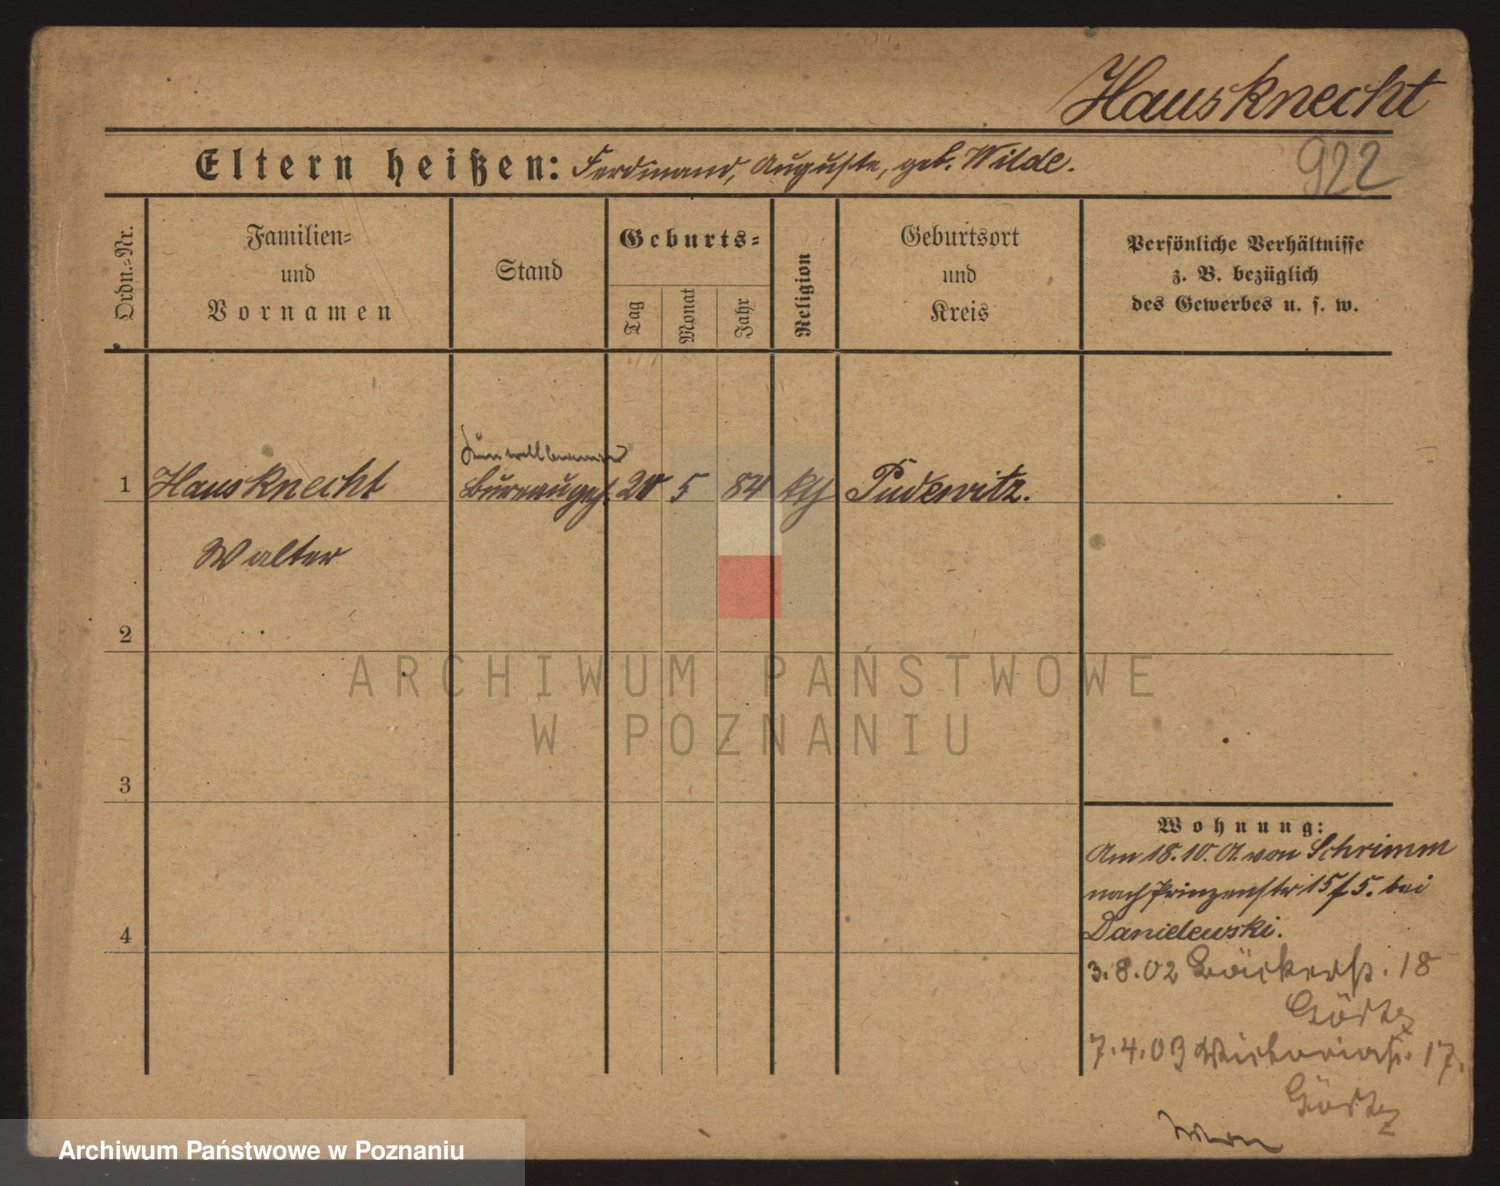 Hausknecht
Eltern heißen: Ferdinand, Auguste, geb. Wilde.
922
Ordn.-Nr.
Familien-
und
Vornamen
Stand
Geburts-
Tag
Monat
Jahr
Religion
Geburtsort
und
Kreis
Persönliche Verhältnisse
z. B. bezüglich
des Gewerbes u. s. w.
1 Hausknecht Bureaugeh. 20 5 84 kth Pudewitz.
Walter
2
3
4
Wohnung:
Am 18.10.01 von Schrimm
nach Prinzenstr 15 f 5. bei
Danielewski.
3.8.02 Bäckerstr. 18
7.4.03 Victoriastr. 17.
ARCHIWUM PAŃSTWOWE
W POZNANIU
Archiwum Państwowe w Poznaniu